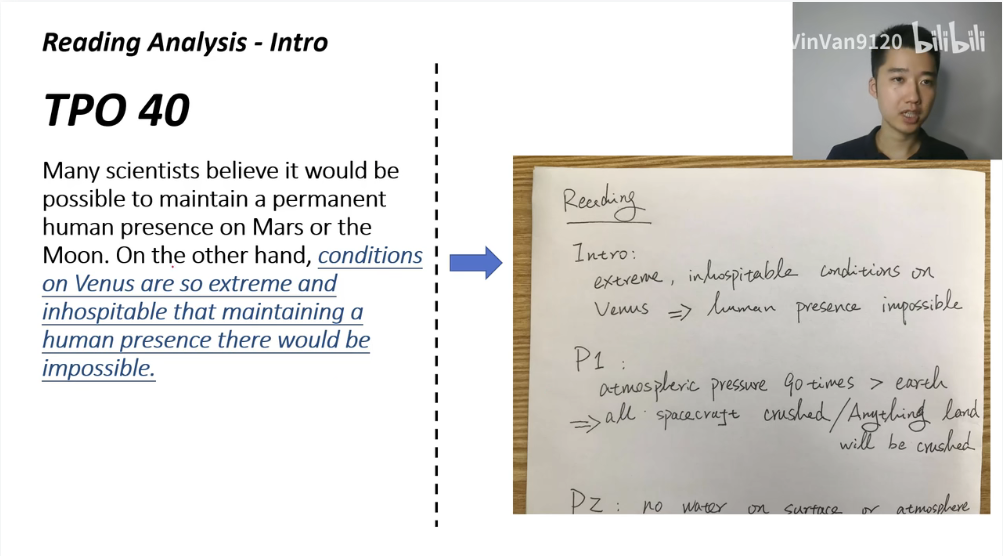 Reading Analysis - Intro
VinVan9120 bilibili
TPO 40
Many scientists believe it would be
possible to maintain a permanent
human presence on Mars or the
Moon. On the other hand, conditions
on Venus are so extreme and
inhospitable that maintaining a
human presence there would be
impossible.
Reading
Intro:
extreme, inhospitable conditions on
Venus => human presence impossible
P1 :
atmospheric pressure 90 times > earth
=> all spacecraft crushed/Anything land
will be crushed
P2 : no water on surface or atmosphere